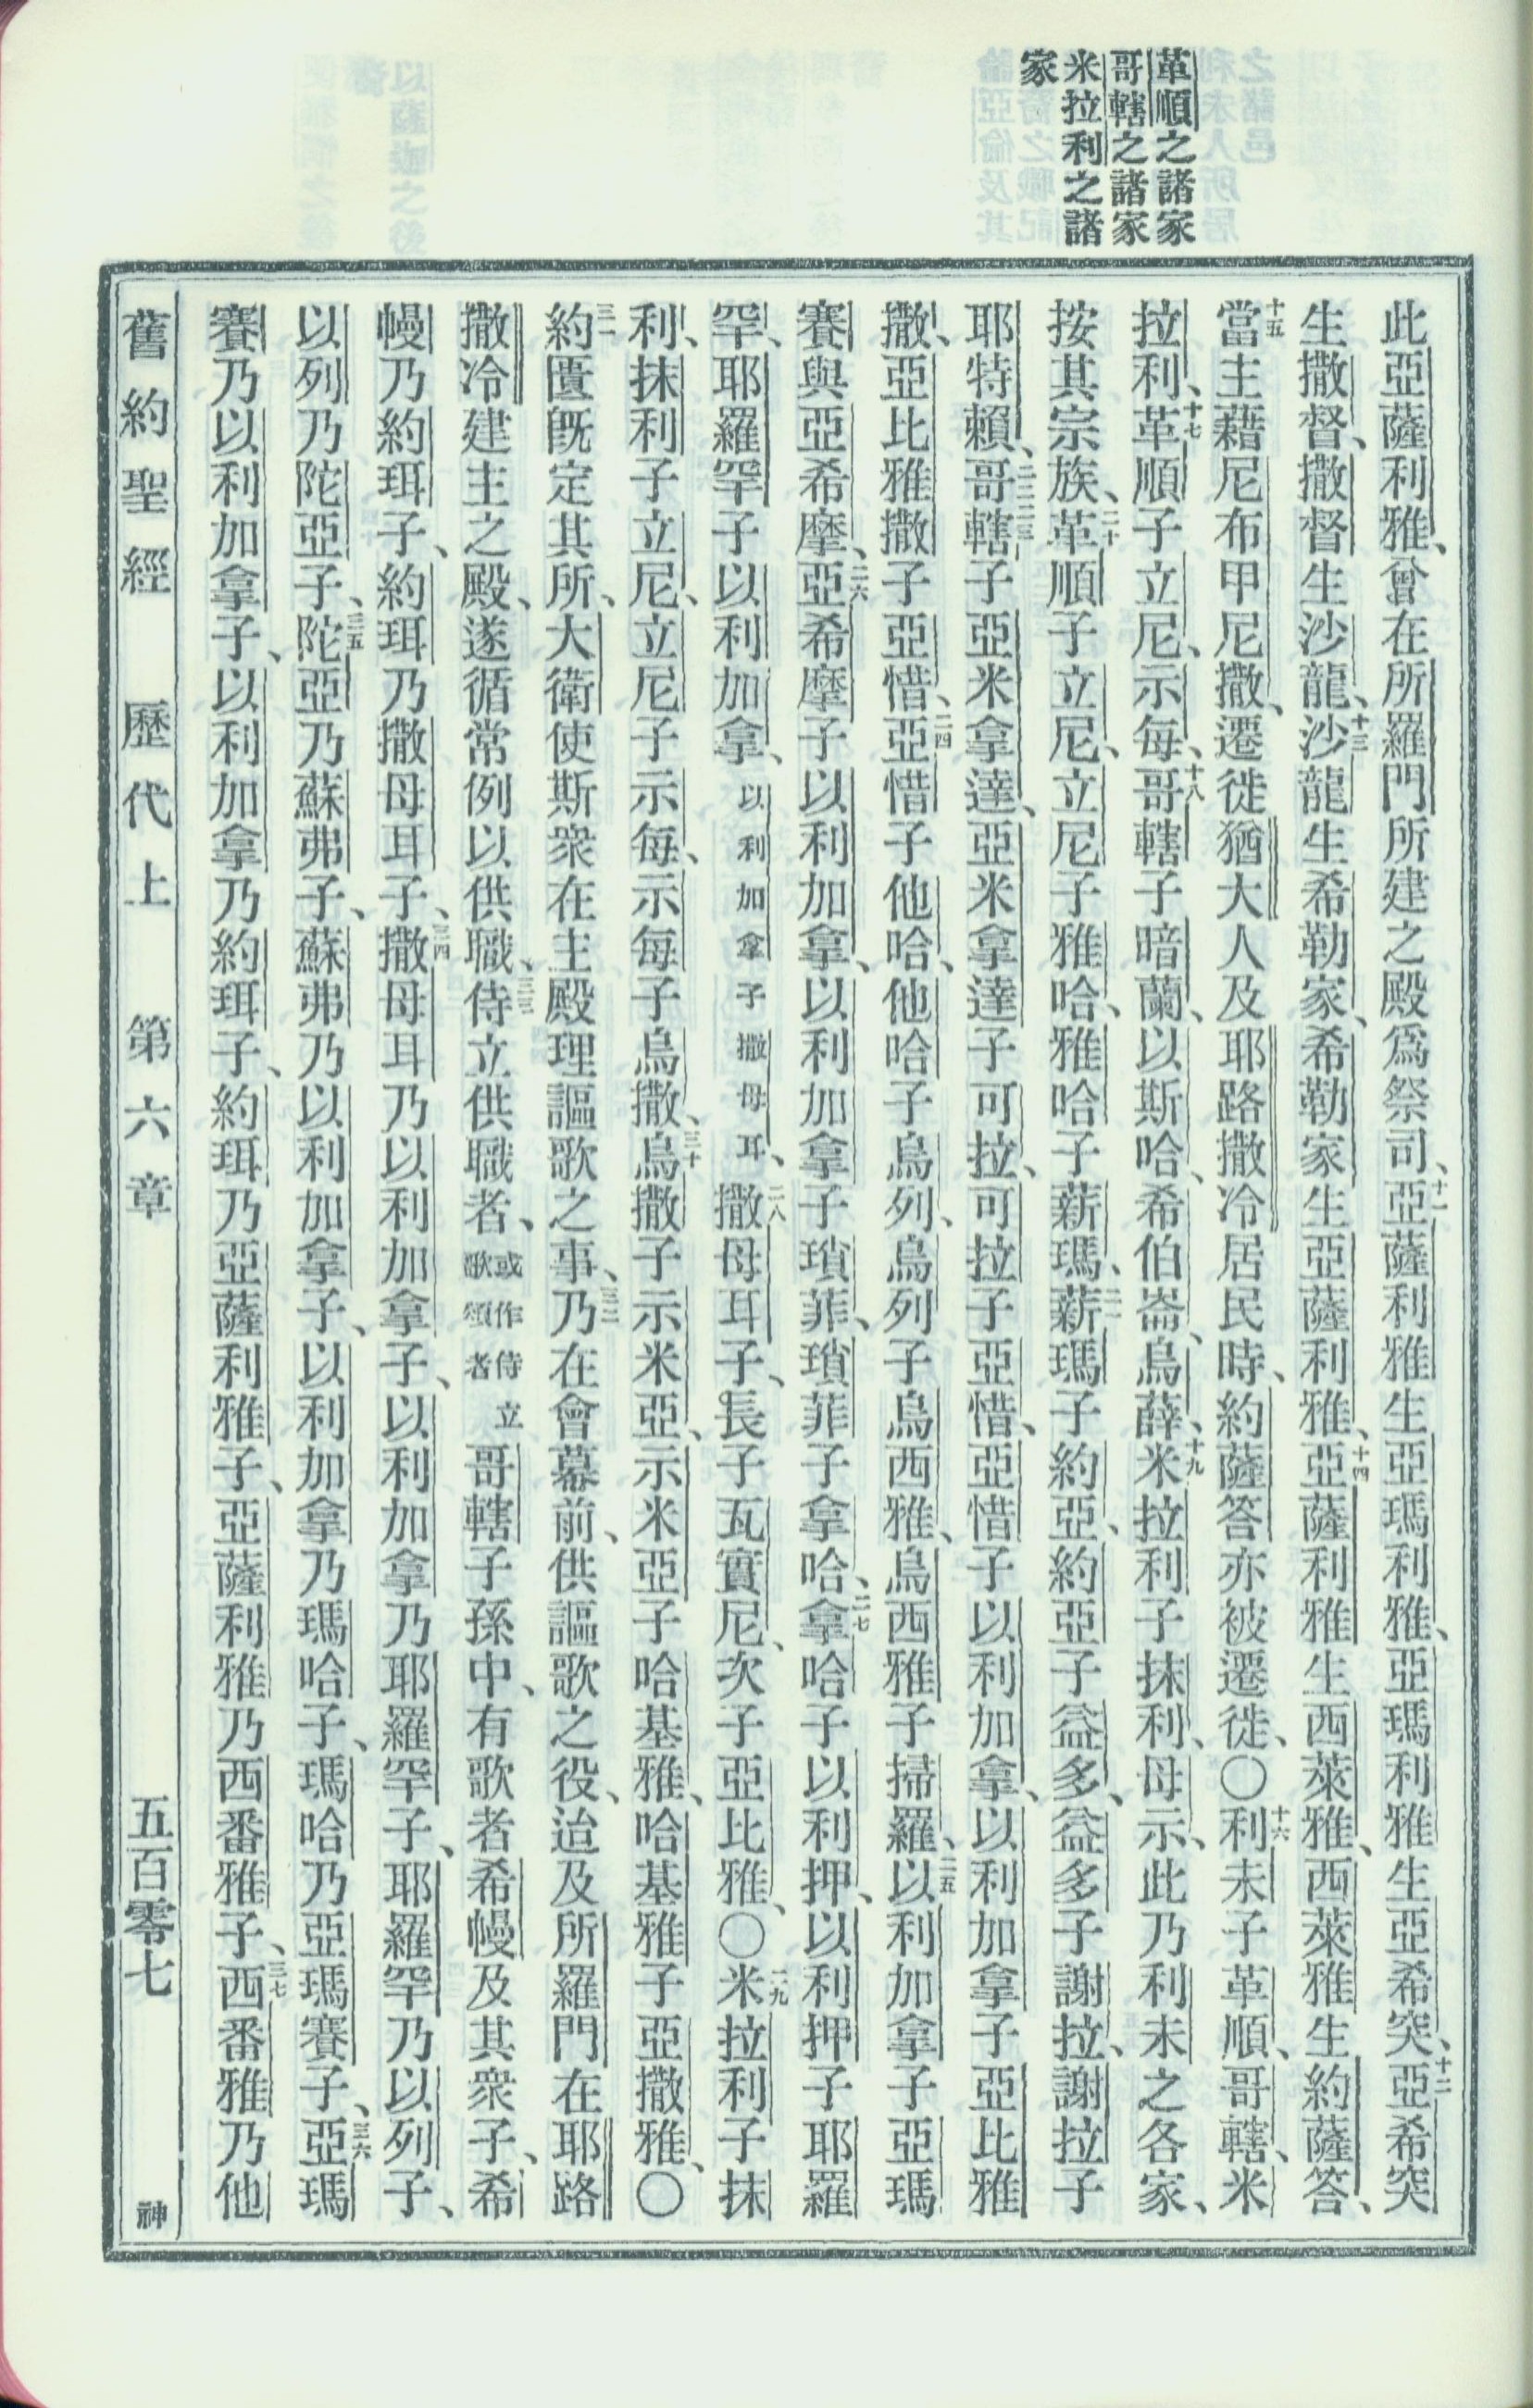 革順之諸家
哥轄之諸家
米拉利之諸
家
此亞薩利雅、曾在所羅門所建之殿爲祭司、十一亞薩利雅生亞瑪利雅、亞瑪利雅生亞希突、十二亞希突
生撒督、撒督生沙龍、十三沙龍生希勒家、希勒家生亞薩利雅、十四亞薩利雅生西萊雅、西萊雅生約薩答、
十五當主藉尼布甲尼撒、遷徙猶大人及耶路撒冷居民時、約薩答亦被遷徙、〇十六利未子革順、哥轄、米
拉利、十七革順子立尼、示每、十八哥轄子暗蘭、以斯哈、希伯崙、烏薛、十九米拉利子抹利、母示、此乃利未之各家、
按其宗族、二十革順子立尼、立尼子雅哈、雅哈子薪瑪、二一薪瑪子約亞、約亞子益多、益多子謝拉、謝拉子
耶特賴、二二二三哥轄子亞米拿達、亞米拿達子可拉、可拉子亞惜、亞惜子以利加拿、以利加拿子亞比雅
撒、亞比雅撒子亞惜、二四亞惜子他哈、他哈子烏列、烏列子烏西雅、烏西雅子掃羅、二五以利加拿子亞瑪
賽與亞希摩、二六亞希摩子以利加拿、以利加拿子瑣菲、瑣菲子拿哈、二七拿哈子以利押、以利押子耶羅
罕、耶羅罕子以利加拿、以利加拿子撒母耳、二八撒母耳子、長子瓦實尼、次子亞比雅、〇二九米拉利子抹
利、抹利子立尼、立尼子示每、示每子烏撒、三十烏撒子示米亞、示米亞子哈基雅、哈基雅子亞撒雅、〇
三一約匱旣定其所、大衛使斯衆在主殿理謳歌之事、三二乃在會幕前、供謳歌之役、迨及所羅門在耶路
撒冷建主之殿、遂循常例以供職、三三侍立供職者、或作侍立歌頌者哥轄子孫中、有歌者希幔及其衆子、希
幔乃約珥子、約珥乃撒母耳子、三四撒母耳乃以利加拿子、以利加拿乃耶羅罕子、耶羅罕乃以列子、
以列乃陀亞子、三五陀亞乃蘇弗子、蘇弗乃以利加拿子、以利加拿乃瑪哈子、瑪哈乃亞瑪賽子、三六亞瑪
賽乃以利加拿子、以利加拿乃約珥子、約珥乃亞薩利雅子、亞薩利雅乃西番雅子、三七西番雅乃他
舊約聖經 歷代上 第六章 五百零七 神